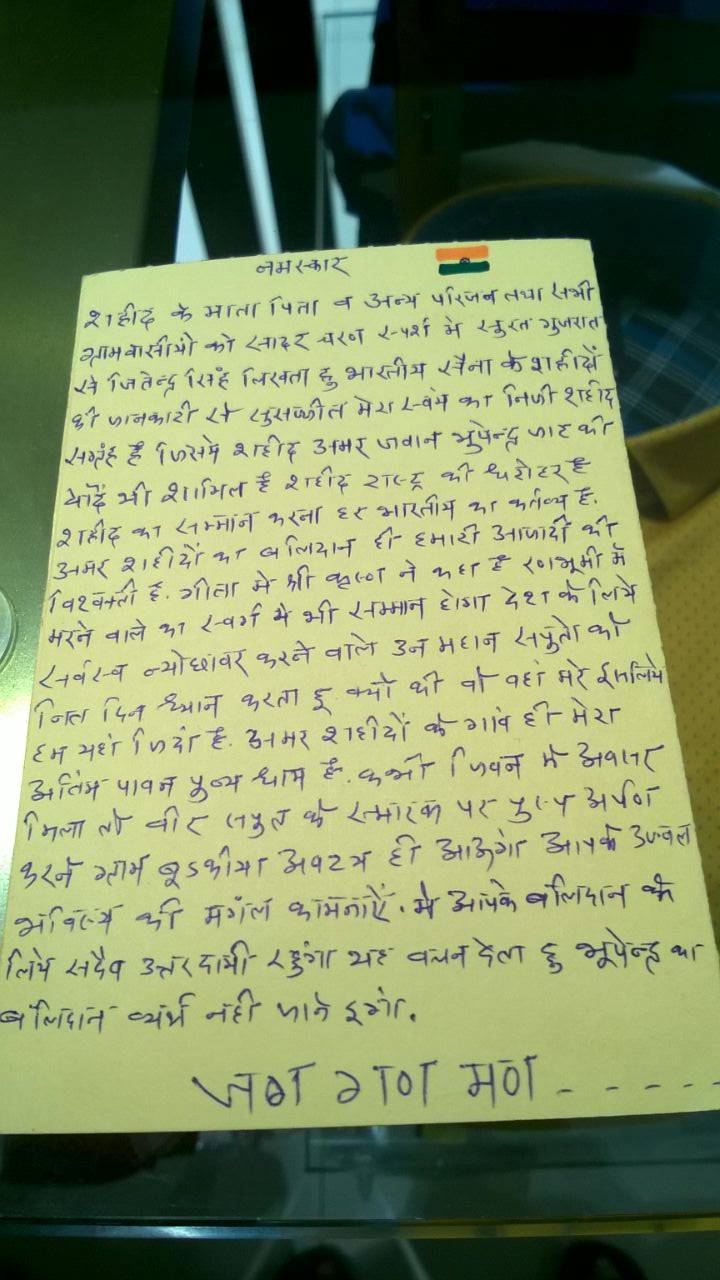 नमस्कार
शहीद के माता पिता व अन्य परिजन तथा सभी
ग्रामवासीयो को सादर चरण स्पर्श मे सुरत गुजरात
से जितेन्द्र सिंह लिखता हु भारतीय सैना के शहीदों
की जानकारी से सुसज्जीत मेरा स्वंय का निजी शहीद
सग्रंह है जिसमे शहीद अमर जवान भुपेन्द्र जाट की
यादें भी शामिल है शहीद राष्ट्र की धरोहर है
शहीद का सम्मान करना हर भारतीय का कर्तव्य है.
अमर शहीदों का बलिदान ही हमारी आजादी की
है. गीता मे श्री कृष्ण ने कहा है रणभूमी मे
मरने वाले का स्वर्ग मे भी सम्मान होगा देश के लिये
सर्वस्व न्योछावर करने वाले उन महान सपुतो को
नित दिन ध्यान करता हू क्यों की वो वहां मरे इसलिये
हम यहां जिंदा है. अमर शहीदों के गावं ही मेरा
अतिंम पावन पुन्य धाम है. कभी जिवन मे अवसर
मिला तो वीर सपुत के स्मारक पर पुस्प अर्पण
करने ग्राम बुडकीया अवश्य ही आऊगां आपके उज्वल
भविष्य की मगंल कामनाऐं. मे आपके बलिदान के
लिये सदैव उत्तरदायी रहुंगा यह वचन देता हु भूपेन्द्र का
बलिदान व्यर्थ नही जाने दुगां.
जण गण मण - - - - -